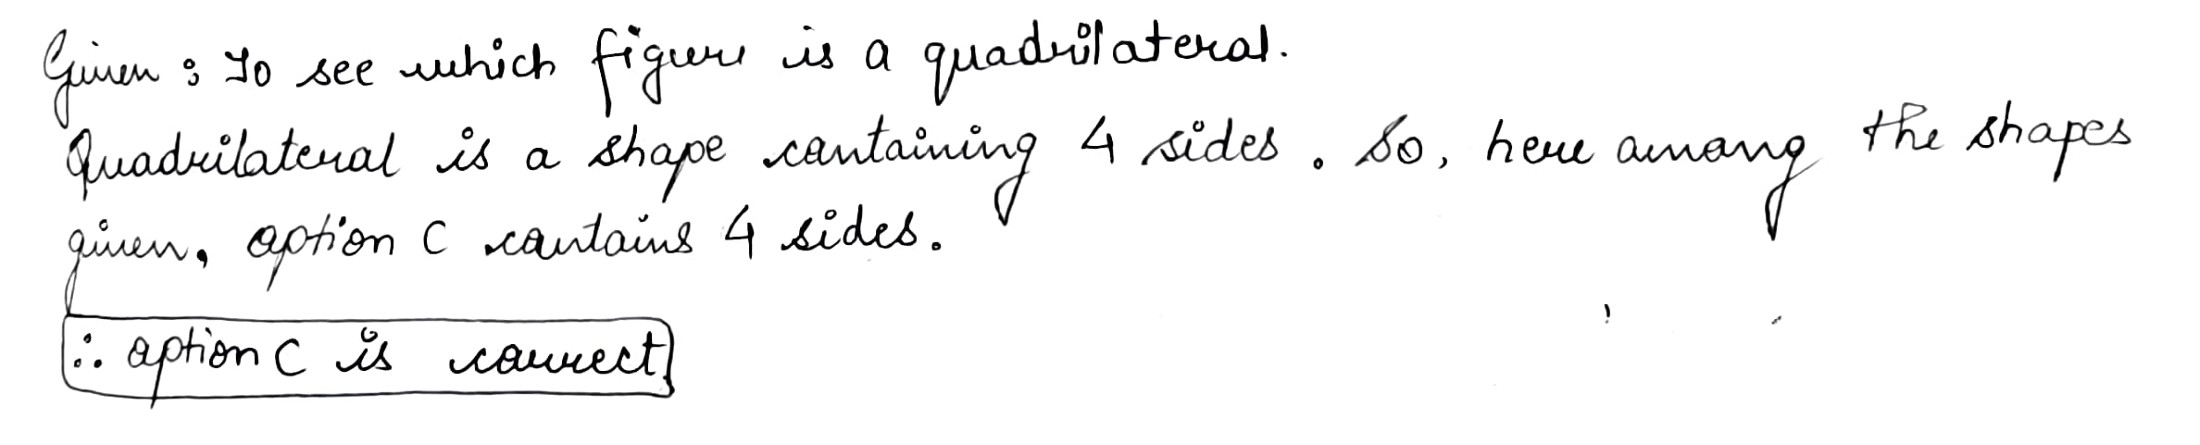 Given : To see which figure is a quadrilateral.
Quadrilateral is a shape containing 4 sides. So, here among the shapes
given, option C contains 4 sides.
∴ option C is correct.